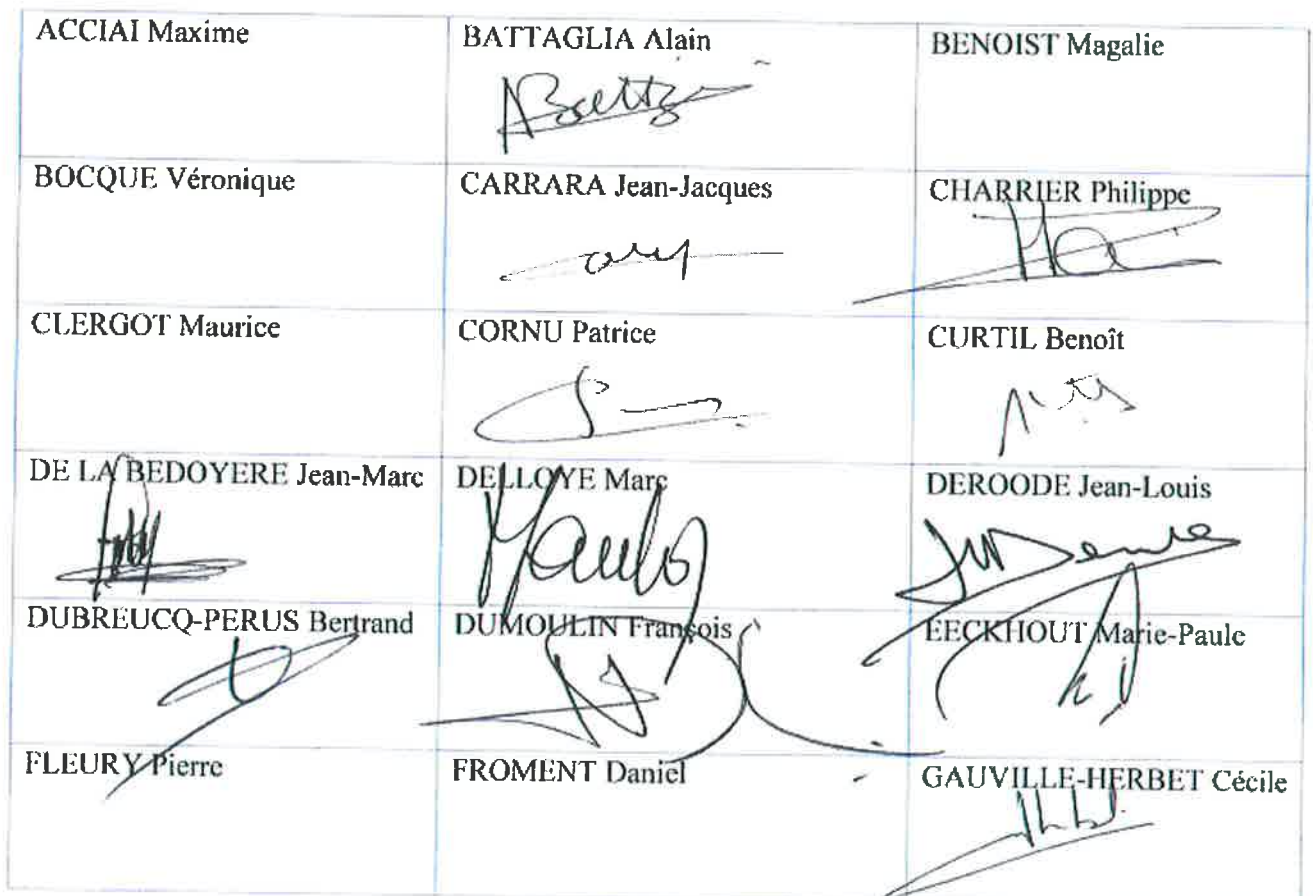 ACCIAI Maxime
BATTAGLIA Alain
BENOIST Magalie
BOCQUE Véronique
CARRARA Jean-Jacques
CHARRIER Philippe
CLERGOT Maurice
CORNU Patrice
CURTIL Benoît
DE LA BEDOYERE Jean-Marc
DELLOYE Marc
DEROODE Jean-Louis
DUBREUCQ-PERUS Bertrand
DUMOULIN François
EECKHOUT Marie-Paule
FLEURY Pierre
FROMENT Daniel
GAUVILLE-HERBET Cécile